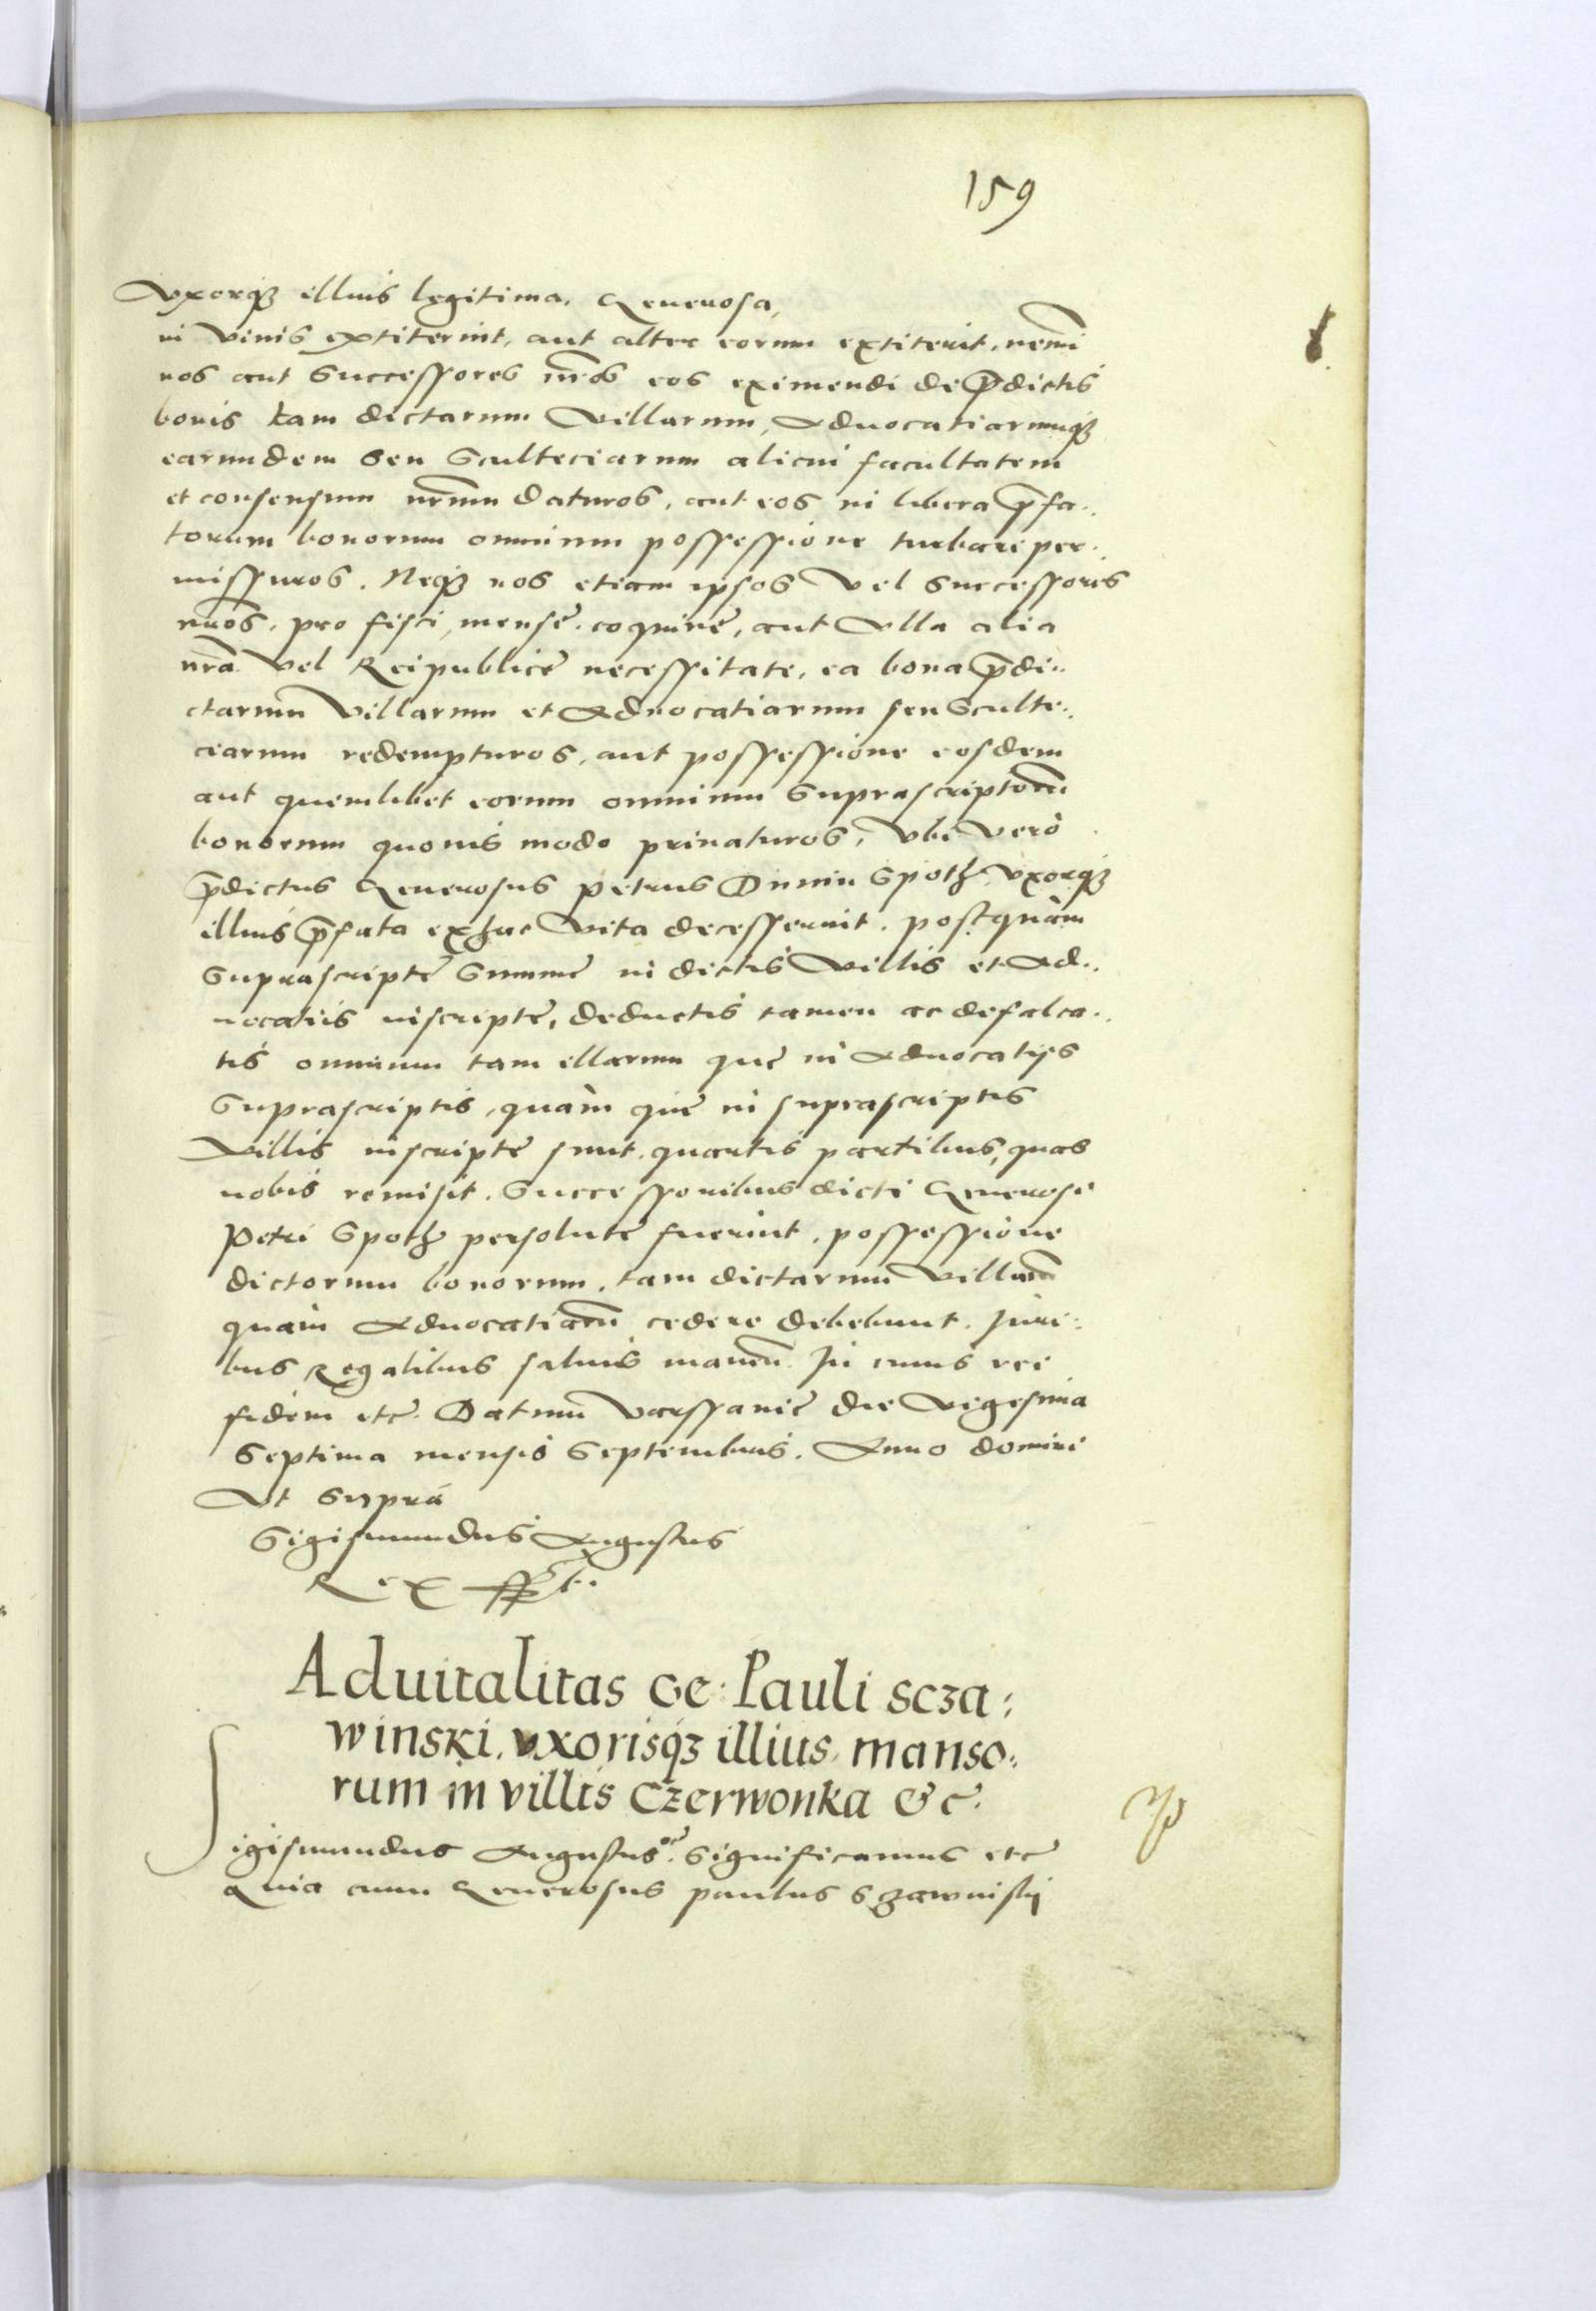 159
Uxorq3 illius legitima, Generosa,
in vivis extiterint, aut alter eorum extiterit, nemi
nos aut Successores nr̃os eos eximendi de p̃dictis
bonis tam dictarum Villarum, Advocatiarumq3
earundem seu Scultetiarum alicui facultatem
et consensum nr̃um daturos, aut eos in libera p̃fa:
torum bonorum omnium possessione turbari per:
missuros. Neq3 nos etiam ipsos vel Successores
nr̃os, pro fisci, mensę, coquinę, aut Ulla alia
nr̃a vel Reipublicę necessitate, ea bona p̃di:
ctarum Villarum et Advocatiarum seu Sculte:
ciarum redempturos, aut possessione eosdem
aut quemlibet eorum omnium Suprascriptorũ
bonorum quovis modo privaturos, Ubi verò
p̃dictus Generosus Petrus Dunin Spoth, Uxorq3
illius p̃fata ex hac Vita decesserint, postquàm
Suprascriptę Summę in dictis Villis et Ad:
vocatiis inscriptę, deductis tamen ac defalca:
tis omnium tam illarum quę in Advocatijs
Suprascriptis, quàm quę in suprascriptis
Villis inscriptę sunt, quartis partibus, quas
nobis remisit, Successoribus dicti Generosi
Petri Spoth persolutę fuerint, possessione
dictorum bonorum, tam dictarum Villarũ
quàm Advocatiarũ cedere debebunt, Juri:
bus Regalibus salvis manen̄. In cuius rei
fidem etc. Datum Varssavię die Vigesima
Septima mensis Septembris. Anno domini
Ut supra
Sigismundus Augustus
Rex sspt.
Aduitalitas Ge: Pauli Scza:
winski, uxorisq3 illius, manso:
rum in villis Czerwonka &c.
Sigismundus Augustus etc. Significamus etc
Quia cum Generosus Paulus Szawinskj